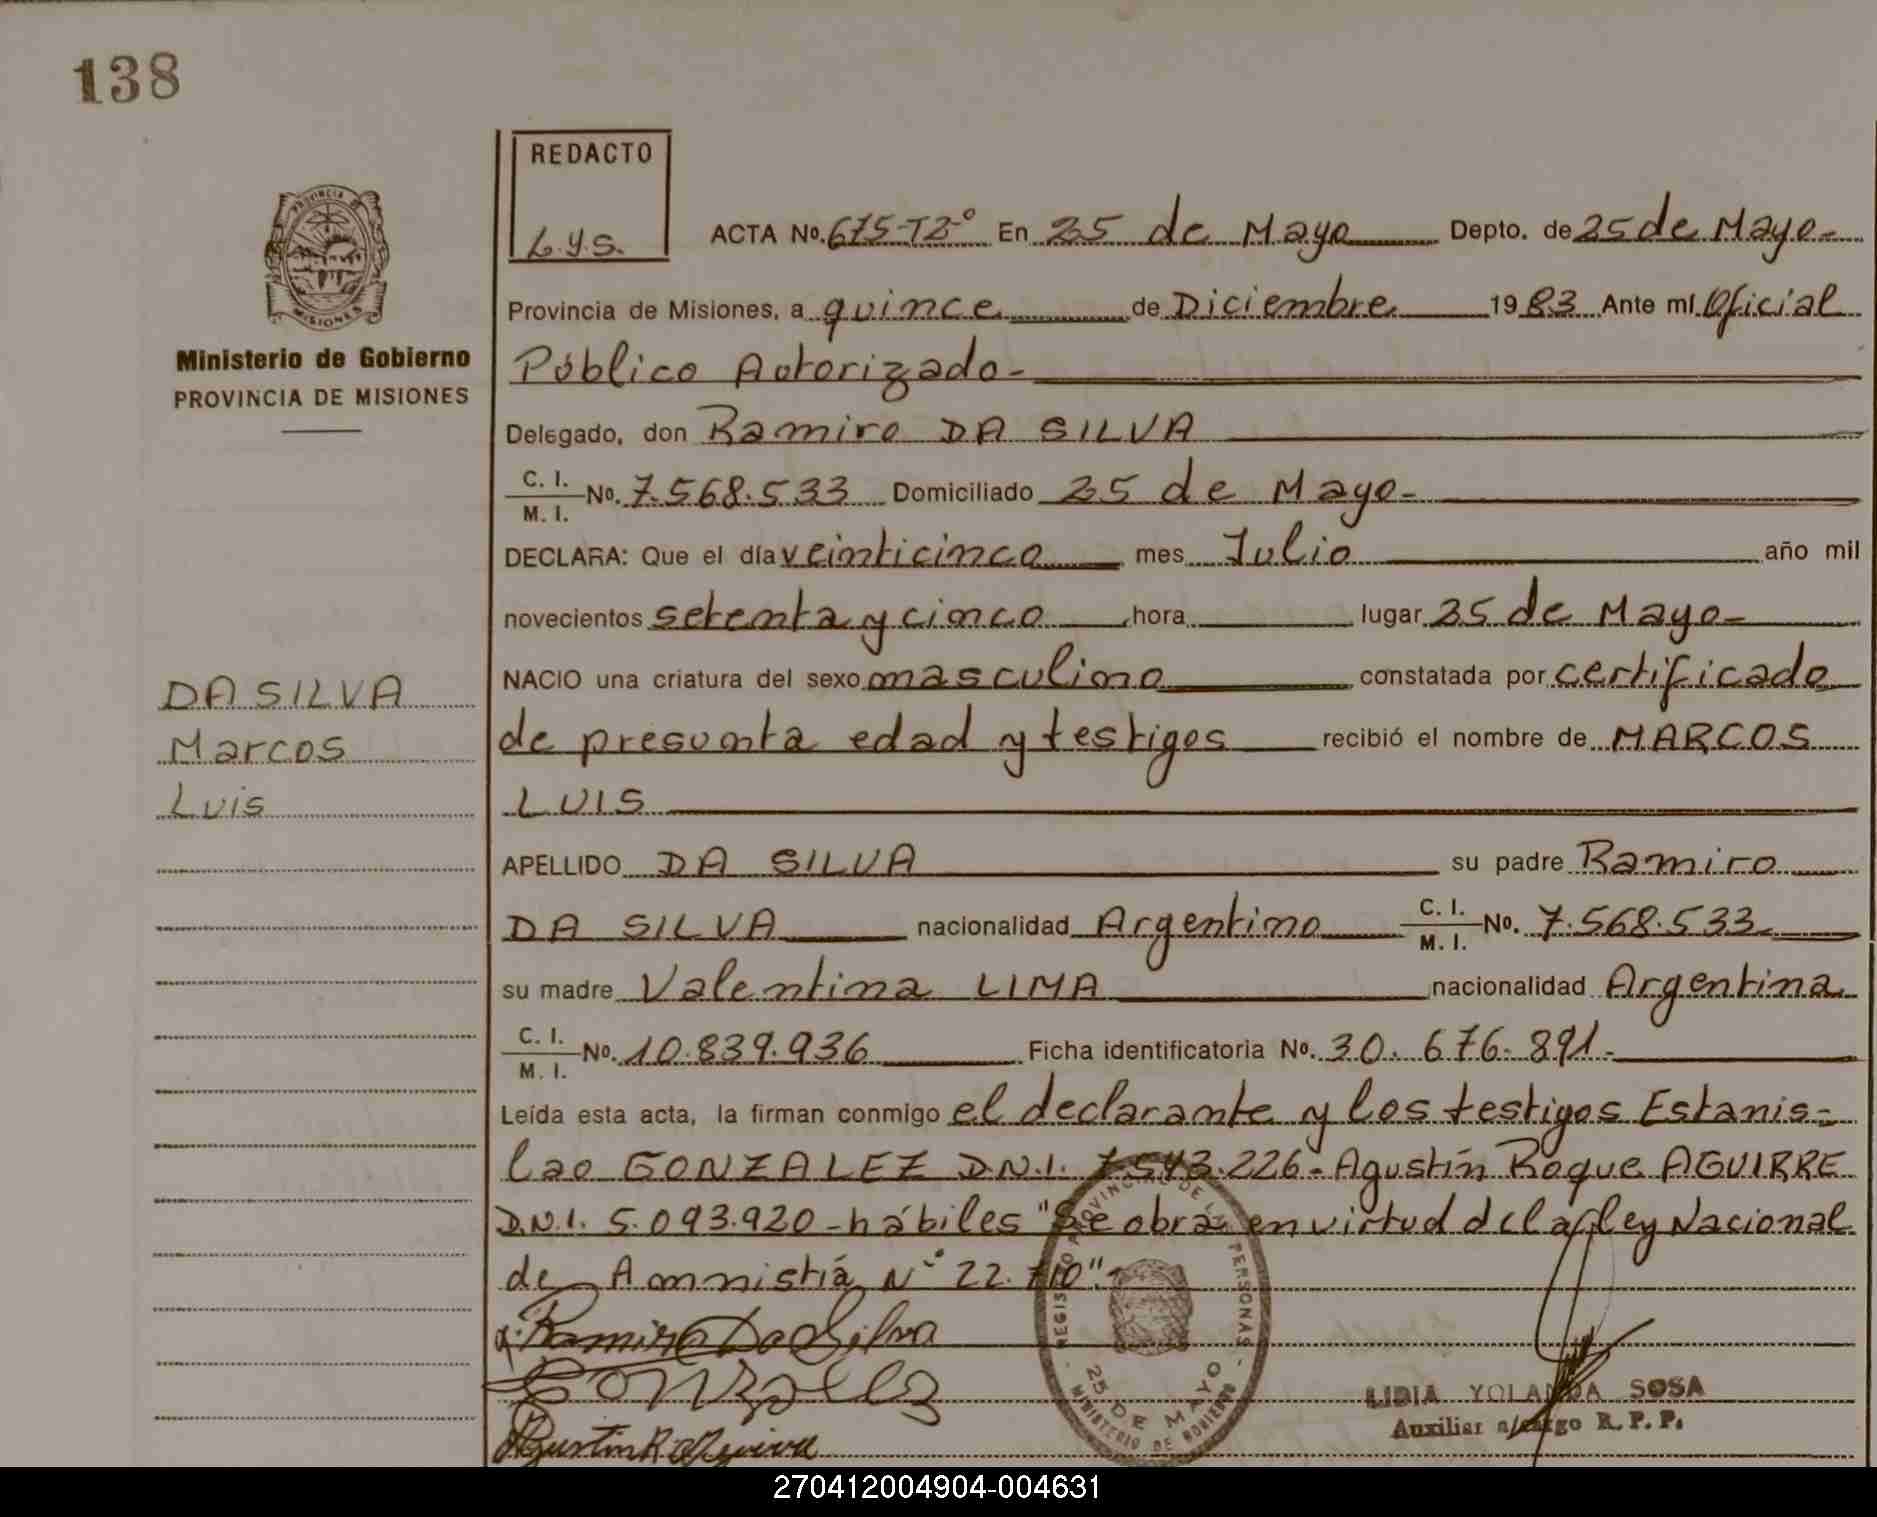 138
REDACTO
L.y.S.
PROVINCIA DE
MISIONES
Ministerio de Gobierno
PROVINCIA DE MISIONES
ACTA No. 675-T2-° En 25 de Mayo Depto. de 25 de Mayo-
Provincia de Misiones, a quince de Diciembre 1983 Ante mí Oficial
Público Autorizado-
Delegado, don Ramiro DA SILVA
C. I. / M. I. No. 7.568.533 Domiciliado 25 de Mayo-
DECLARA: Que el día veinticinco mes Julio año mil
novecientos setenta y cinco hora lugar 25 de Mayo-
NACIO una criatura del sexo masculino constatada por certificado
de presunta edad y testigos recibió el nombre de MARCOS
LUIS
DA SILVA
Marcos
Luis
APELLIDO DA SILVA su padre Ramiro
DA SILVA nacionalidad Argentino C. I. / M. I. No. 7.568.533
su madre Valentina LIMA nacionalidad Argentina
C. I. / M. I. No. 10.839.936 Ficha identificatoria No. 30.676.891-
Leída esta acta, la firman conmigo el declarante y los testigos Estanis-
lao GONZALEZ D.N.I. 7.543.226- Agustín Roque AGUIRRE
D.N.I. 5.093.920-hábiles "Se obra en virtud de la ley Nacional
de Amnistiá N° 22.710"-
Ramiro Da Silva
Gonzalez
REGISTRO PROVINCIAL DE LAS PERSONAS
25 DE MAYO
MINISTERIO DE GOBIERNO
LIDIA YOLANDA SOSA
Auxiliar a/cargo R. P. P.
270412004904-004631